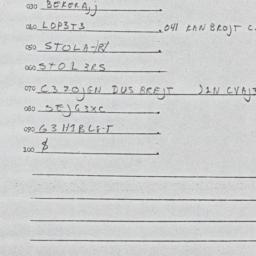 030 BEKERAJJ
040 LOP3T3 041 KAN BROJT C
050 STOLA-R/
060 STOL 3RS
070 C3 ZOJGN DUS BREJT JIN CVAJ3
080 SEJG3XC
090 G3 H1BLE-T
100 $